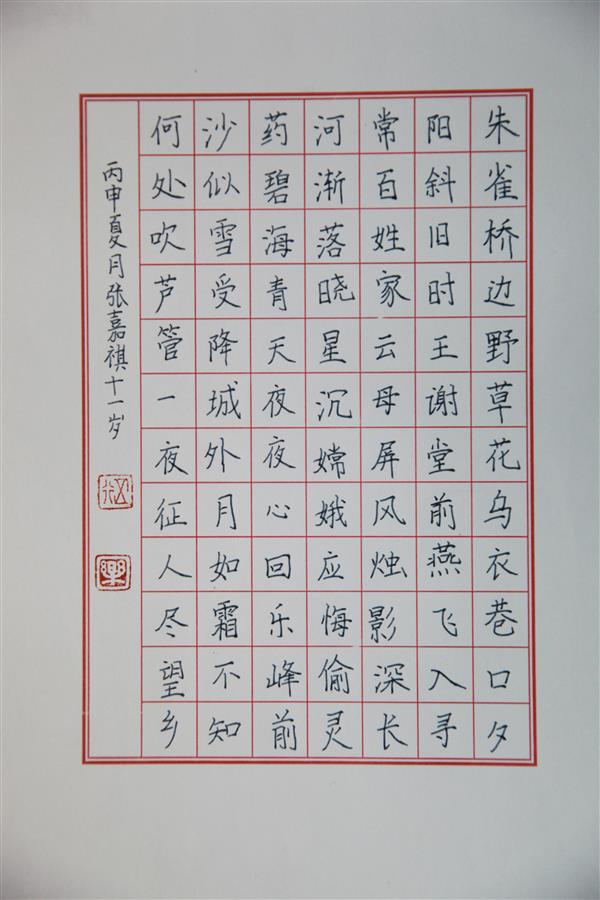 朱雀桥边野草花乌衣巷口夕
阳斜旧时王谢堂前燕飞入寻
常百姓家云母屏风烛影深长
河渐落晓星沉嫦娥应悔偷灵
药碧海青天夜夜心回乐峰前
沙似雪受降城外月如霜不知
何处吹芦管一夜征人尽望乡
丙申夏月张嘉祺十一岁
樂